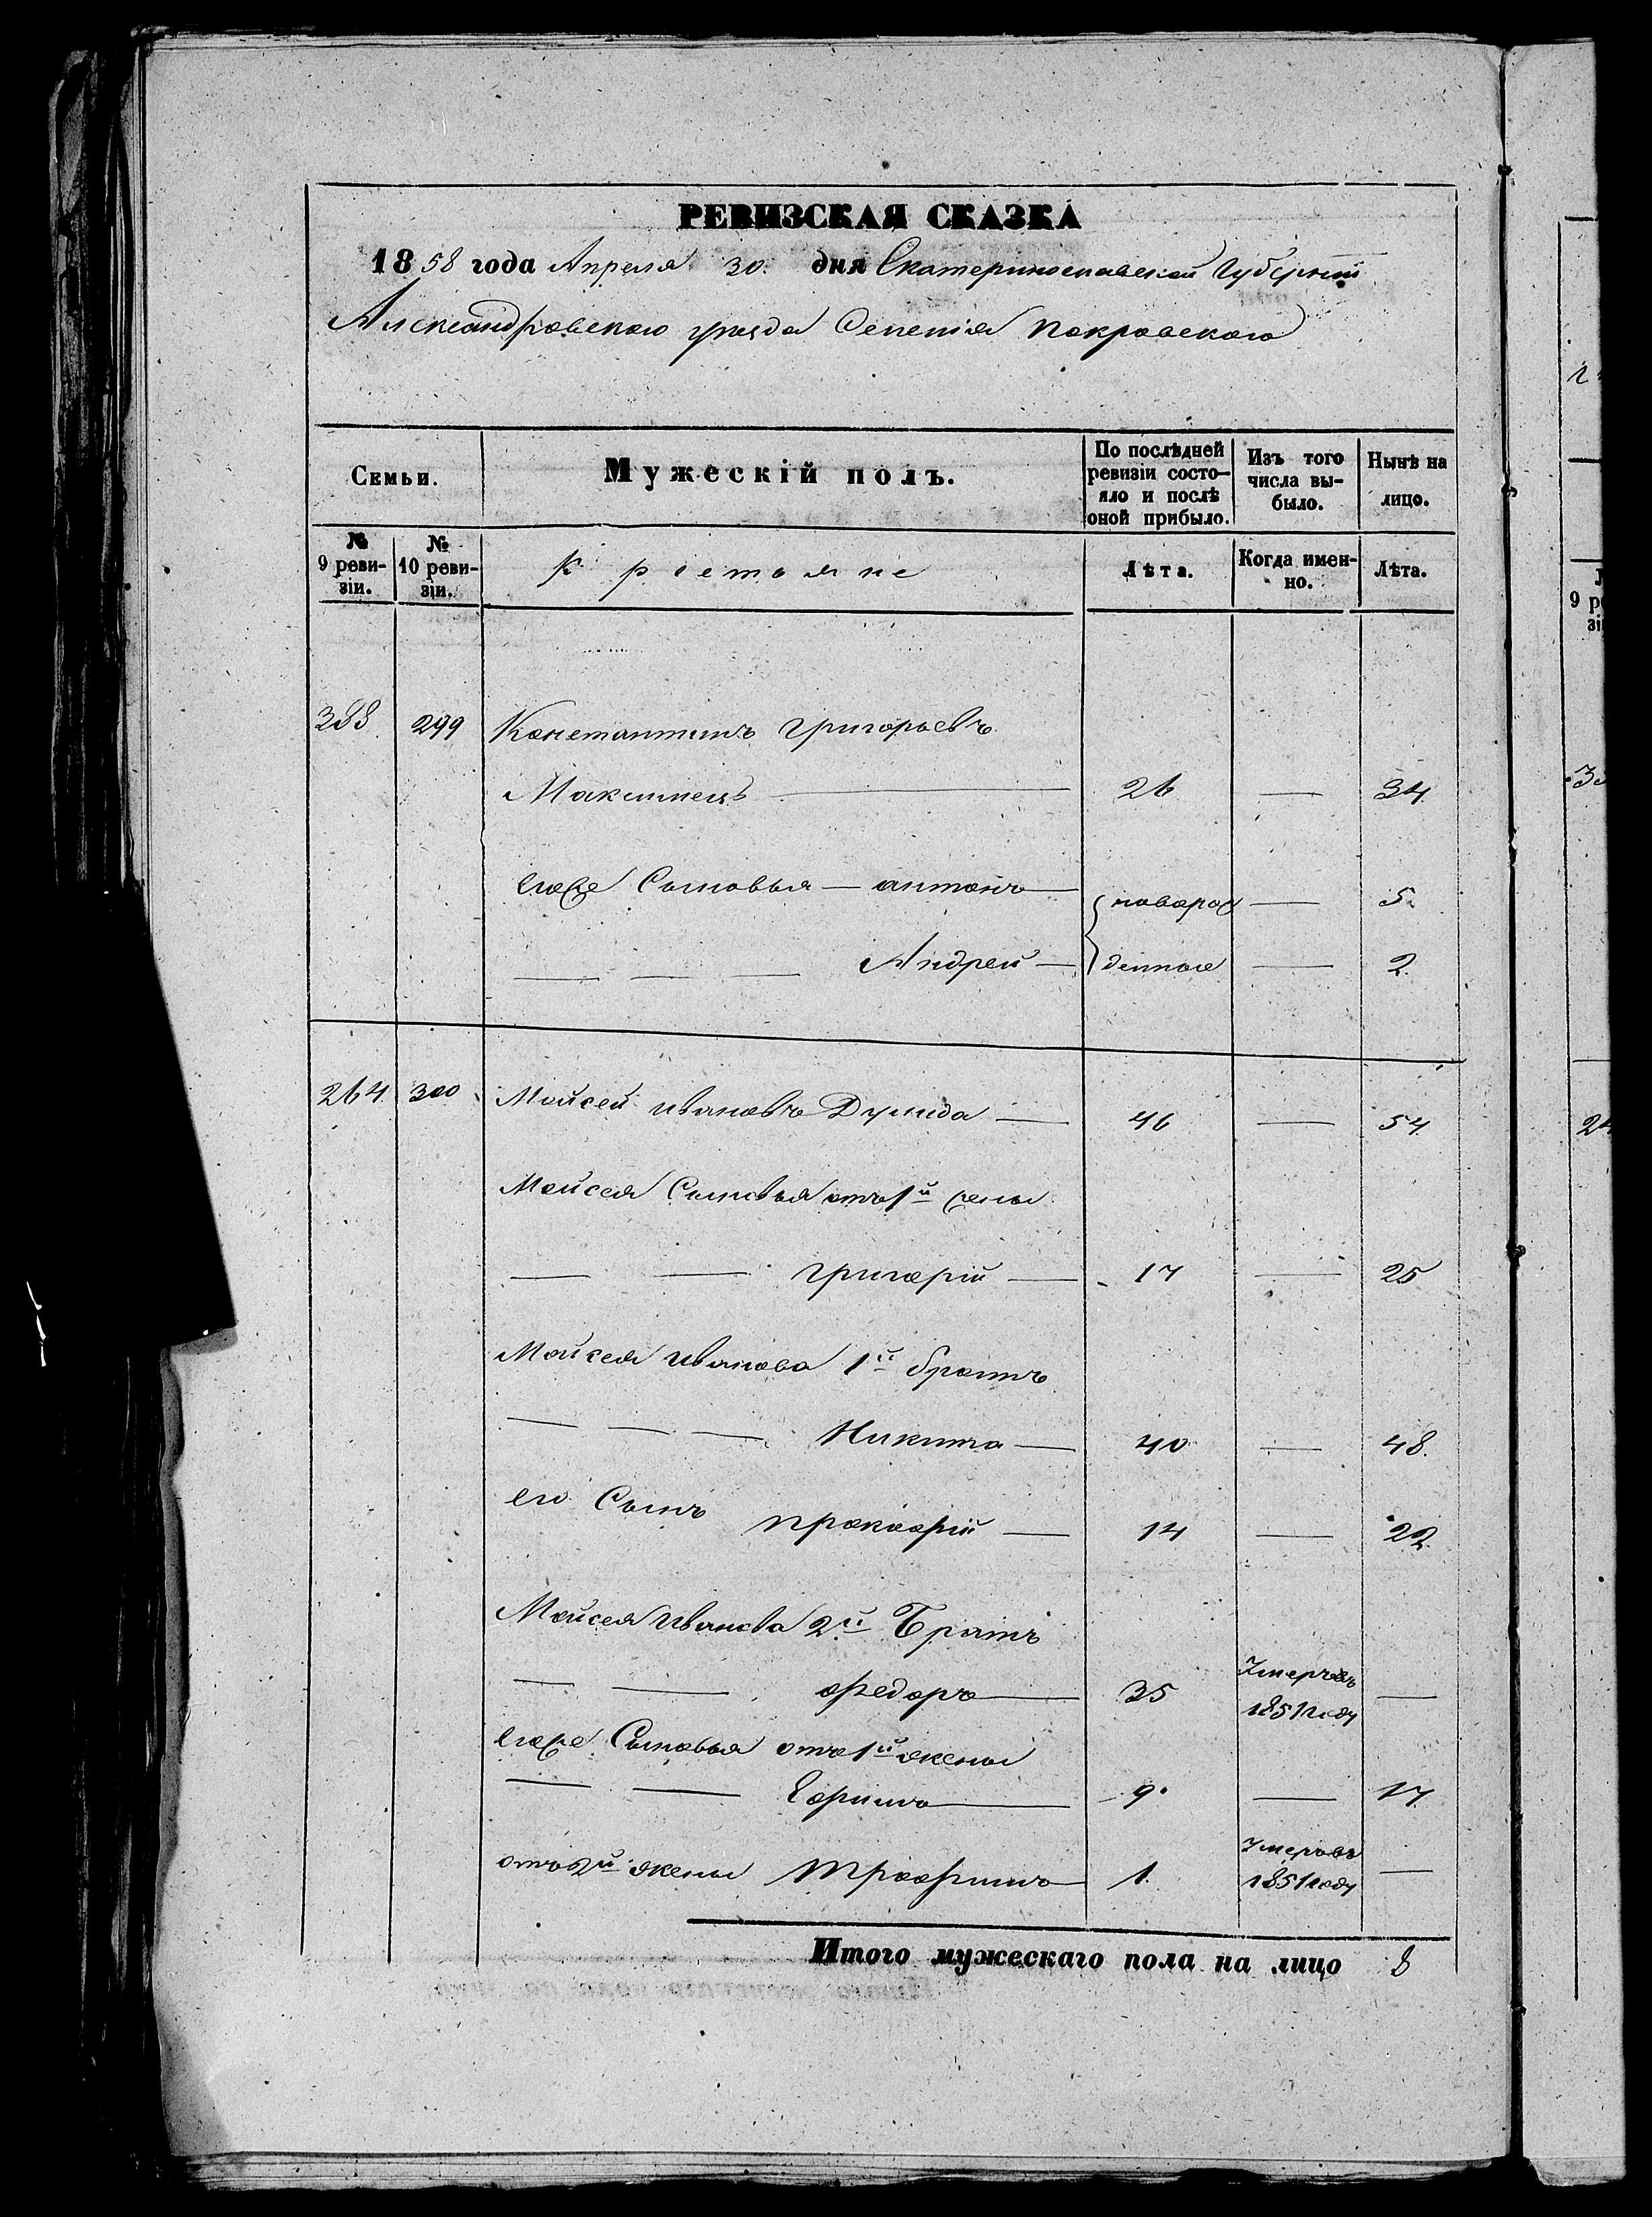 РЕВИЗСКАЯ СКАЗКА
1858 года Апреля 30. дня Екатеринославской Губернии
Александровского уезда Селения Покровского
Семьи. Мужескій полъ. По послѣдней ревизіи состо-яло и послѣ оной прибыло. Изъ того числа вы-было. Нынѣ на лицо.
№ 9 реви-зіи. № 10 реви-зіи. Крестьяне Лѣта. Когда имен-но. Лѣта.
388 299 Константинъ Григорьевъ
Максимецъ 26 — 34
егоже Сыновья — Антонъ — новорож — 5.
— — — Андрей — денные — 2.
264 300 Мойсей Ивановъ Дунида — 46 — 54
Мойсея Сыновья отъ 1й жены
— — Григорій — 17 — 25
Мойсея Иванова 1й братъ
— — — Никита — 40 — 48.
его Сынъ Прокофій — 14 — 22
Мойсея Иванова 2й Братъ
— — Федоръ — 35 Умеръ въ 1851 году —
егоже Сыновья отъ 1й жены
— — Ефимъ — 9 — 17
отъ 2й жены Трофимъ — 1. Умеръ въ 1851 году —
Итого мужескаго пола на лицо 8
9 ре
зі